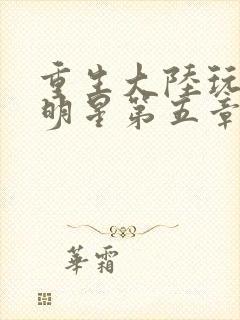 重生大陸玩
明星第五章
華霜